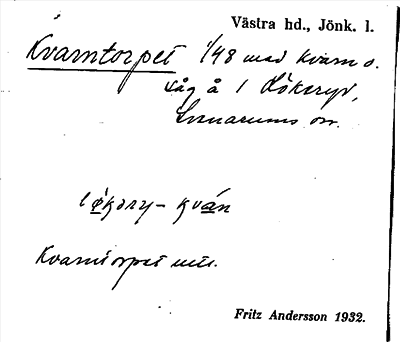 Västra hd., Jönk. l.
Kvarntorpet 1/48 med kvarn o.
såg å 1 Lökeryd,
Svenarums sn.
løkəry - kván
Kvarntorpet utt.
Fritz Andersson 1932.